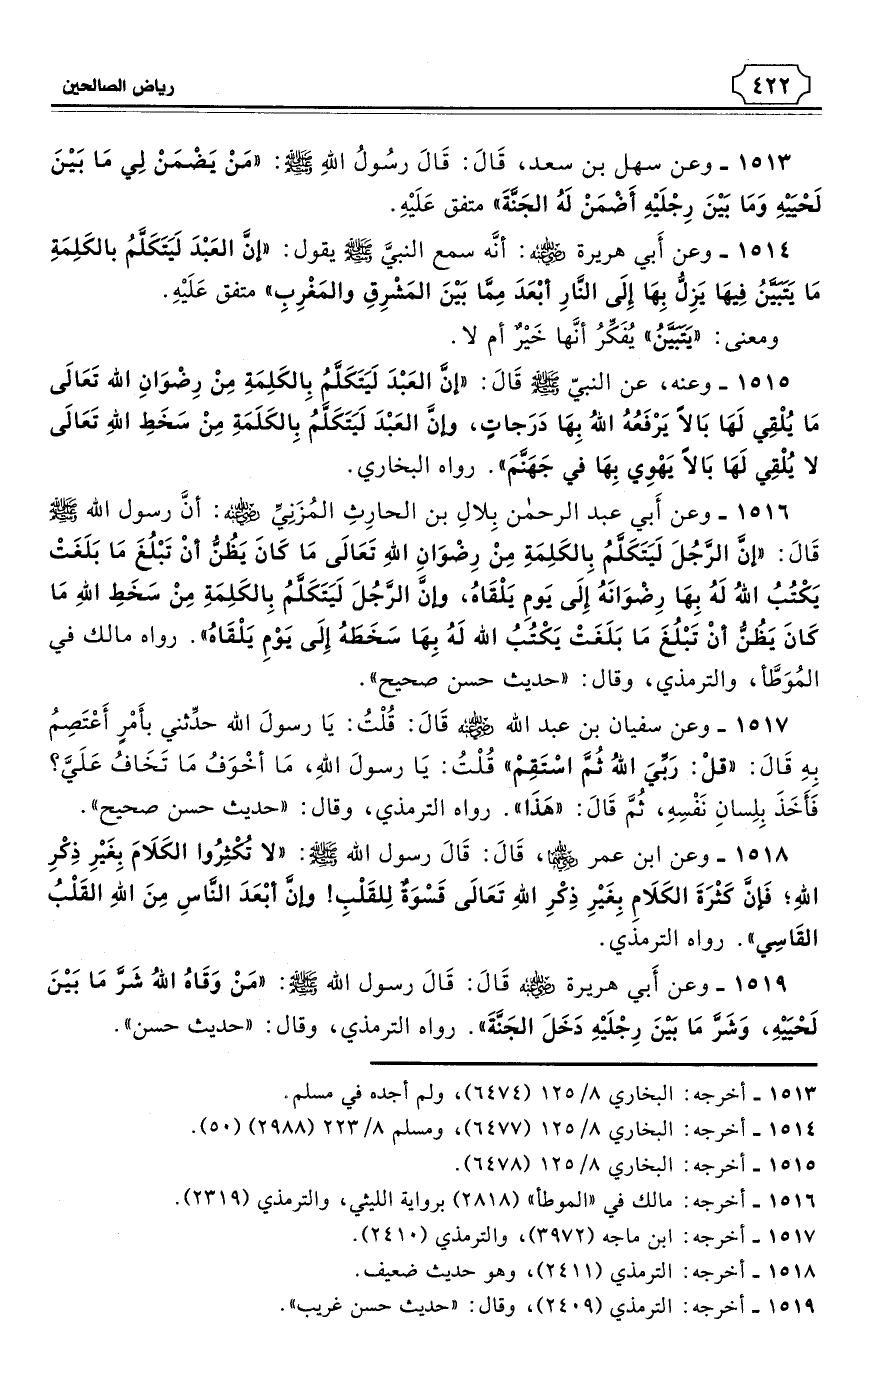 ٤٢٢
رياض الصالحين
١٥١٣ ـ وعن سهل بن سعد، قَالَ: قَالَ رسُولُ اللهِ ﷺ: «مَنْ يَضْمَنْ لِي مَا بَيْنَ
لَحْيَيْهِ وَمَا بَيْنَ رِجْلَيْهِ أَضْمَنْ لَهُ الجَنَّةَ» متفق عَلَيْهِ.
١٥١٤ ـ وعن أَبي هريرة ﵁: أنَّه سمع النبيَّ ﷺ يقول: «إنَّ العَبْدَ لَيَتَكَلَّمُ بالكَلِمَةِ
مَا يَتَبَيَّنُ فِيهَا يَزِلُّ بِهَا إِلَى النَّارِ أبْعَدَ مِمَّا بَيْنَ المَشْرِقِ والمَغْرِبِ» متفق عَلَيْهِ.
ومعنى: «يَتَبَيَّنُ» يُفَكِّرُ أنَّها خَيْرٌ أم لا.
١٥١٥ ـ وعنه، عن النبيّ ﷺ قَالَ: «إنَّ العَبْدَ لَيَتَكَلَّمُ بِالكَلِمَةِ مِنْ رِضْوَانِ الله تَعَالَى
مَا يُلْقِي لَهَا بَالاً يَرْفَعُهُ اللهُ بِهَا دَرَجاتٍ، وإنَّ العَبْدَ لَيَتَكَلَّمُ بالكَلَمَةِ مِنْ سَخَطِ اللهِ تَعَالَى
لا يُلْقِي لَهَا بَالاً يَهْوِي بِهَا في جَهَنَّمَ». رواه البخاري.
١٥١٦ ـ وعن أَبي عبد الرحمٰن بِلالِ بن الحارِثِ المُزَنِيِّ ﵁: أنَّ رسول الله ﷺ
قَالَ: «إنَّ الرَّجُلَ لَيَتَكَلَّمُ بِالكَلِمَةِ مِنْ رِضْوَانِ اللهِ تَعَالَى مَا كَانَ يَظُنُّ أنْ تَبْلُغَ مَا بَلَغَتْ
يَكْتُبُ اللهُ لَهُ بِهَا رِضْوَانَهُ إِلَى يَومِ يَلْقَاهُ، وإنَّ الرَّجُلَ لَيَتَكَلَّمُ بِالكَلِمَةِ مِنْ سَخَطِ اللهِ مَا
كَانَ يَظُنُّ أنْ تَبْلُغَ مَا بَلَغَتْ يَكْتُبُ الله لَهُ بِهَا سَخَطَهُ إِلَى يَوْمِ يَلْقَاهُ». رواه مالك في
المُوَطَّأ، والترمذي، وقال: «حديث حسن صحيح».
١٥١٧ ـ وعن سفيان بن عبد الله ﵁ قَالَ: قُلْتُ: يَا رسولَ الله حدِّثني بأَمْرٍ أَعْتَصِمُ
بِهِ قَالَ: «قلْ: رَبِّيَ اللهُ ثُمَّ اسْتَقِمْ» قُلْتُ: يَا رسولَ اللهِ، مَا أخْوَفُ مَا تَخَافُ عَلَيَّ؟
فَأَخَذَ بِلِسانِ نَفْسِهِ، ثُمَّ قَالَ: «هَذَا». رواه الترمذي، وقال: «حديث حسن صحيح».
١٥١٨ ـ وعن ابن عمر ﵄، قَالَ: قَالَ رسول الله ﷺ: «لا تُكْثِرُوا الكَلَامَ بِغَيْرِ ذِكْرِ
اللهِ؛ فَإنَّ كَثْرَةَ الكَلَامِ بِغَيْرِ ذِكْرِ اللهِ تَعَالَى قَسْوَةٌ لِلقَلْبِ! وإنَّ أبْعَدَ النَّاسِ مِنَ اللهِ القَلْبُ
القَاسِي». رواه الترمذي.
١٥١٩ ـ وعن أَبي هريرة ﵁ قَالَ: قَالَ رسول الله ﷺ: «مَنْ وَقَاهُ اللهُ شَرَّ مَا بَيْنَ
لَحْيَيْهِ، وَشَرَّ مَا بَيْنَ رِجْلَيْهِ دَخَلَ الجَنَّةَ». رواه الترمذي، وقال: «حديث حسن».
١٥١٣ ـ أخرجه: البخاري ٨/ ١٢٥ (٦٤٧٤)، ولم أجده في مسلم.
١٥١٤ ـ أخرجه: البخاري ٨/ ١٢٥ (٦٤٧٧)، ومسلم ٨/ ٢٢٣ (٢٩٨٨) (٥٠).
١٥١٥ ـ أخرجه: البخاري ٨/ ١٢٥ (٦٤٧٨).
١٥١٦ ـ أخرجه: مالك في «الموطأ» (٢٨١٨) برواية الليثي، والترمذي (٢٣١٩).
١٥١٧ ـ أخرجه: ابن ماجه (٣٩٧٢)، والترمذي (٢٤١٠).
١٥١٨ ـ أخرجه: الترمذي (٢٤١١)، وهو حديث ضعيف.
١٥١٩ ـ أخرجه: الترمذي (٢٤٠٩)، وقال: «حديث حسن غريب».